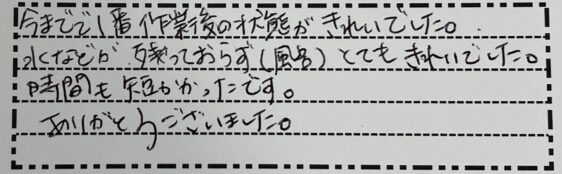 今までで1番作業後の状態がきれいでした。
水などが残っておらず(風呂)とてもきれいでした。
時間も短かかったです。
ありがとうございました。